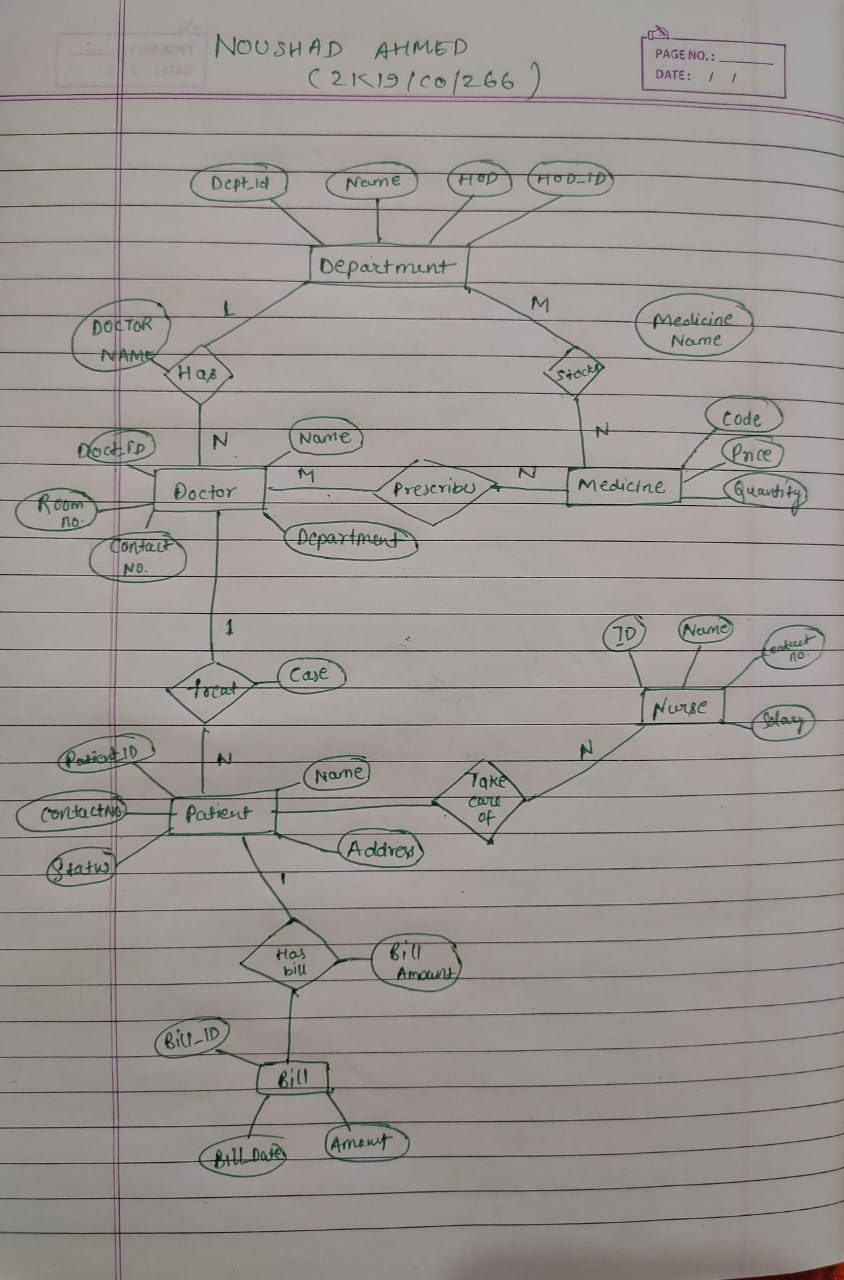 NOUSHAD AHMED
(2K19/CO/266)
PAGE NO.:
DATE: / /
Dept_Id
Name
HOD
HOD_ID
Department
1
M
DOCTOR
NAME
Medicine
Name
Has
Stocks
N
N
Code
Doct_ID
Name
Price
M
N
Doctor
Prescribes
Medicine
Quantity
Room
no.
Contact
No.
Department
1
ID
Name
Contact
no.
Treat
Case
Nurse
Salary
Patient ID
N
N
Name
Take
care
of
Contact No
Patient
Status
Address
1
Has
bill
Bill
Amount
Bill_ID
Bill
Bill_Date
Amount